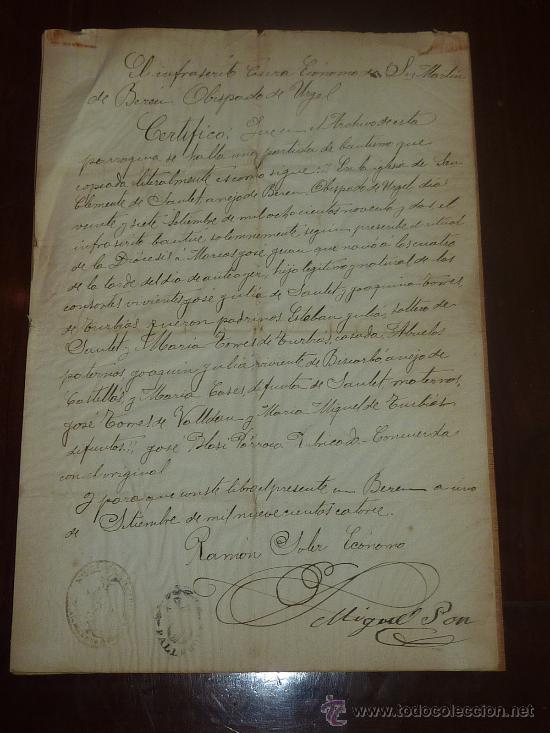 El infrascrito Cura Ecónomo de San Martin
de Beren Obispado de Urgel
Certifico: Que en el Archivo de esta
parroquia se halla una partida de bautismo que
copiada literalmente es como sigue: En la iglesia de San
Clemente de Saulet anejo de Beren Obispado de Urgel dia
veinte y siete Setiembre de mil ochocientos noventa y dos el
infrascrito bauticé solemnemente, segun presente el ritual
de la Diócesis á Marcos José Juan que nació á las cuatro
de la tarde del dia de anteayer, hijo legítimo y natural de los
consortes vivientes José Juliá de Saulet y Joaquina Torres
de Turbias. Fueron padrinos Esteban Juliá, soltero de
Saulet y Maria Torres de Turbias, casada. Abuelos
paternos Joaquin Juliá viviente de Biscarbó anejo de
Castellás y Maria Cases difunta de Saulet, maternos
José Torres de Valldan y Maria Miguel de Turbias
difuntos. José Párroco Rubricado - Concuerda
con el original
Y para que conste libro el presente en Beren a uno
de Setiembre de mil nueve cientos catorce.
Ramón Soler Ecónomo
Miguel Pon
www.todocoleccion.net